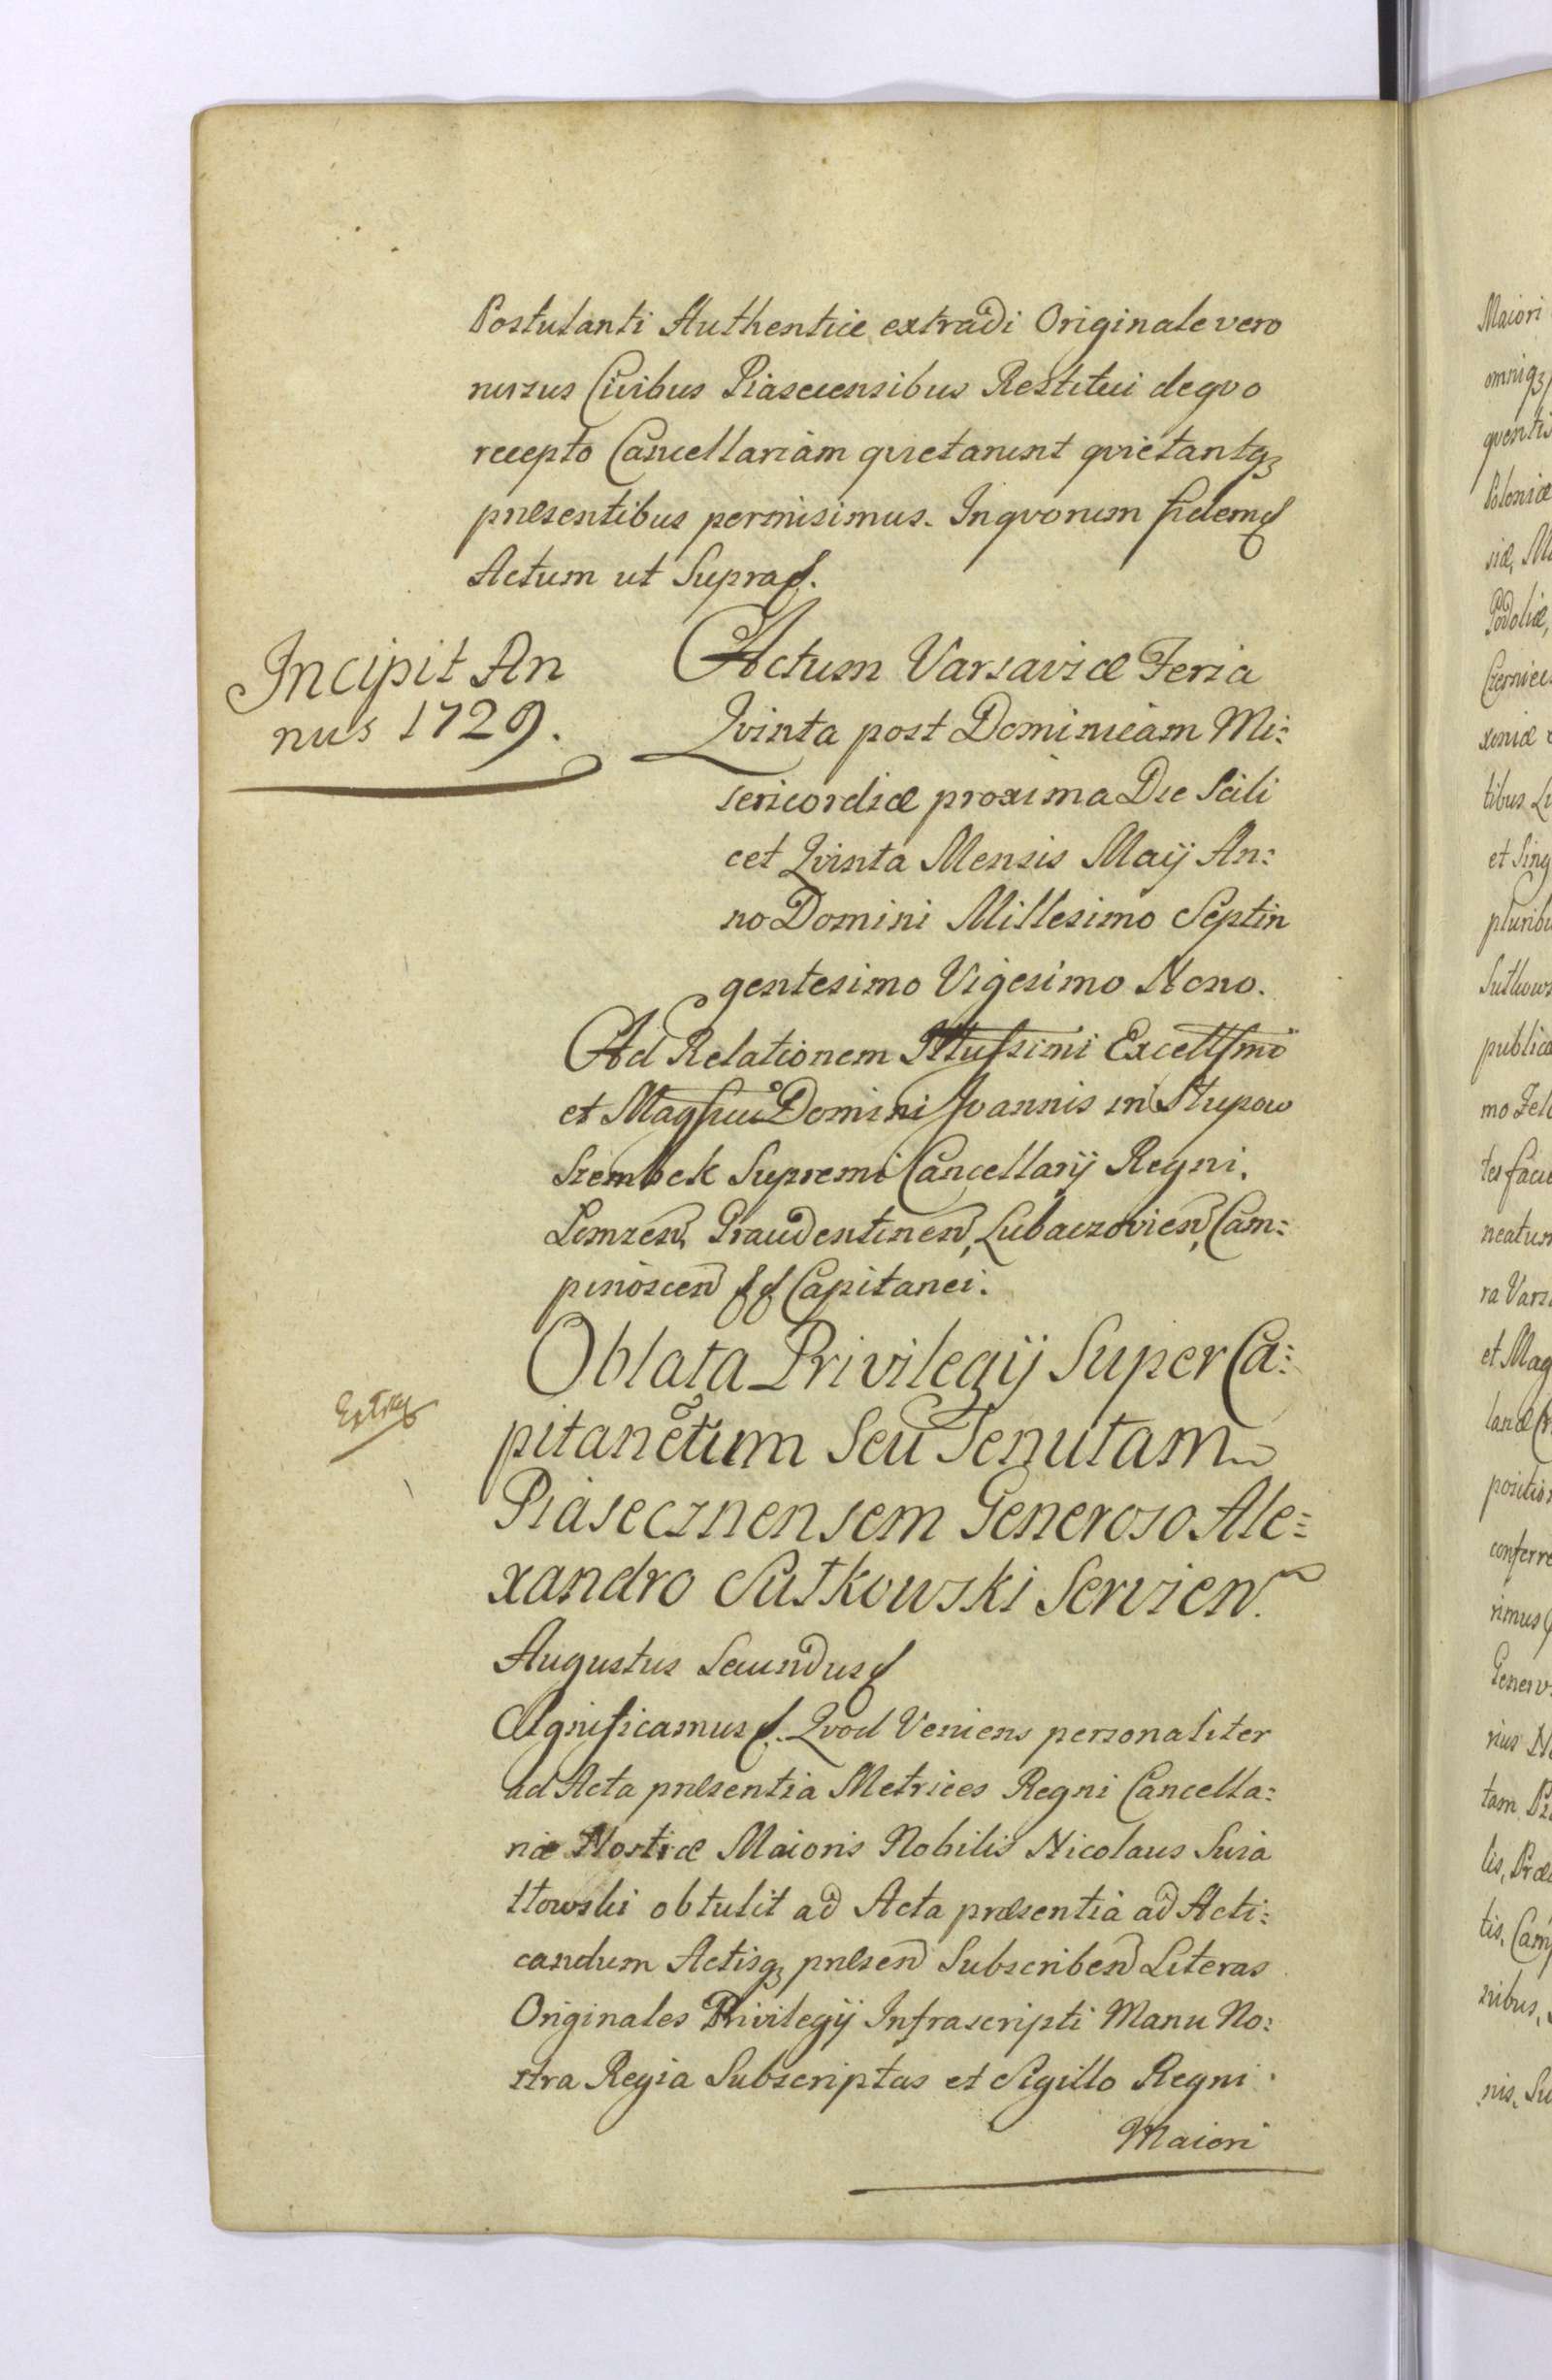 Postulanti Authentice extradi Originale vero
rursus Civibus Piasecensibus Restitui de qvo
recepto Cancellariam qvietarunt qvietantqȝ
præsentibus permisimus. In qvorum fidem
Actum ut Supra.
Incipit An
nus 1729.
Actum Varsaviæ Feria
Qvinta post Dominicam Mi:
sericordiæ proxima Die Scili
cet Qvinta Mensis Maij An:
no Domini Millesimo Septin
gentesimo Vigesimo Nono.
Ad Relationem Illussimi Excellsmi
et Magfici Domini Joannis in Słupow
Szembek Supremi Cancellarij Regni.
Lomzen, Graudentinen, Lubaczovien, Cam:
pinoscen Capitanei.
Oblata Privilegij Super Ca:
pitaneatum Seu Tenutam
Piasecznensem Generoso Ale:
xandro Sutkowski Servien.
Augustus Secundus
Significamus. Qvod Veniens personaliter
ad Acta præsentia Metrices Regni Cancella:
riæ Nostræ Maioris Nobilis Nicolaus
obtulit ad Acta præsentia ad Acti:
candum Actisqȝ præsen Subscriben Literas
Originales Privilegij Infrascripti Manu No:
stra Regia Subscriptas et Sigillo Regni
Maiori
Maiori
omniqȝ
Poloniæ
Podoliæ,
et Sing
publica
ra Vars
et Mag
conferre
rimus
tam
nis, Su